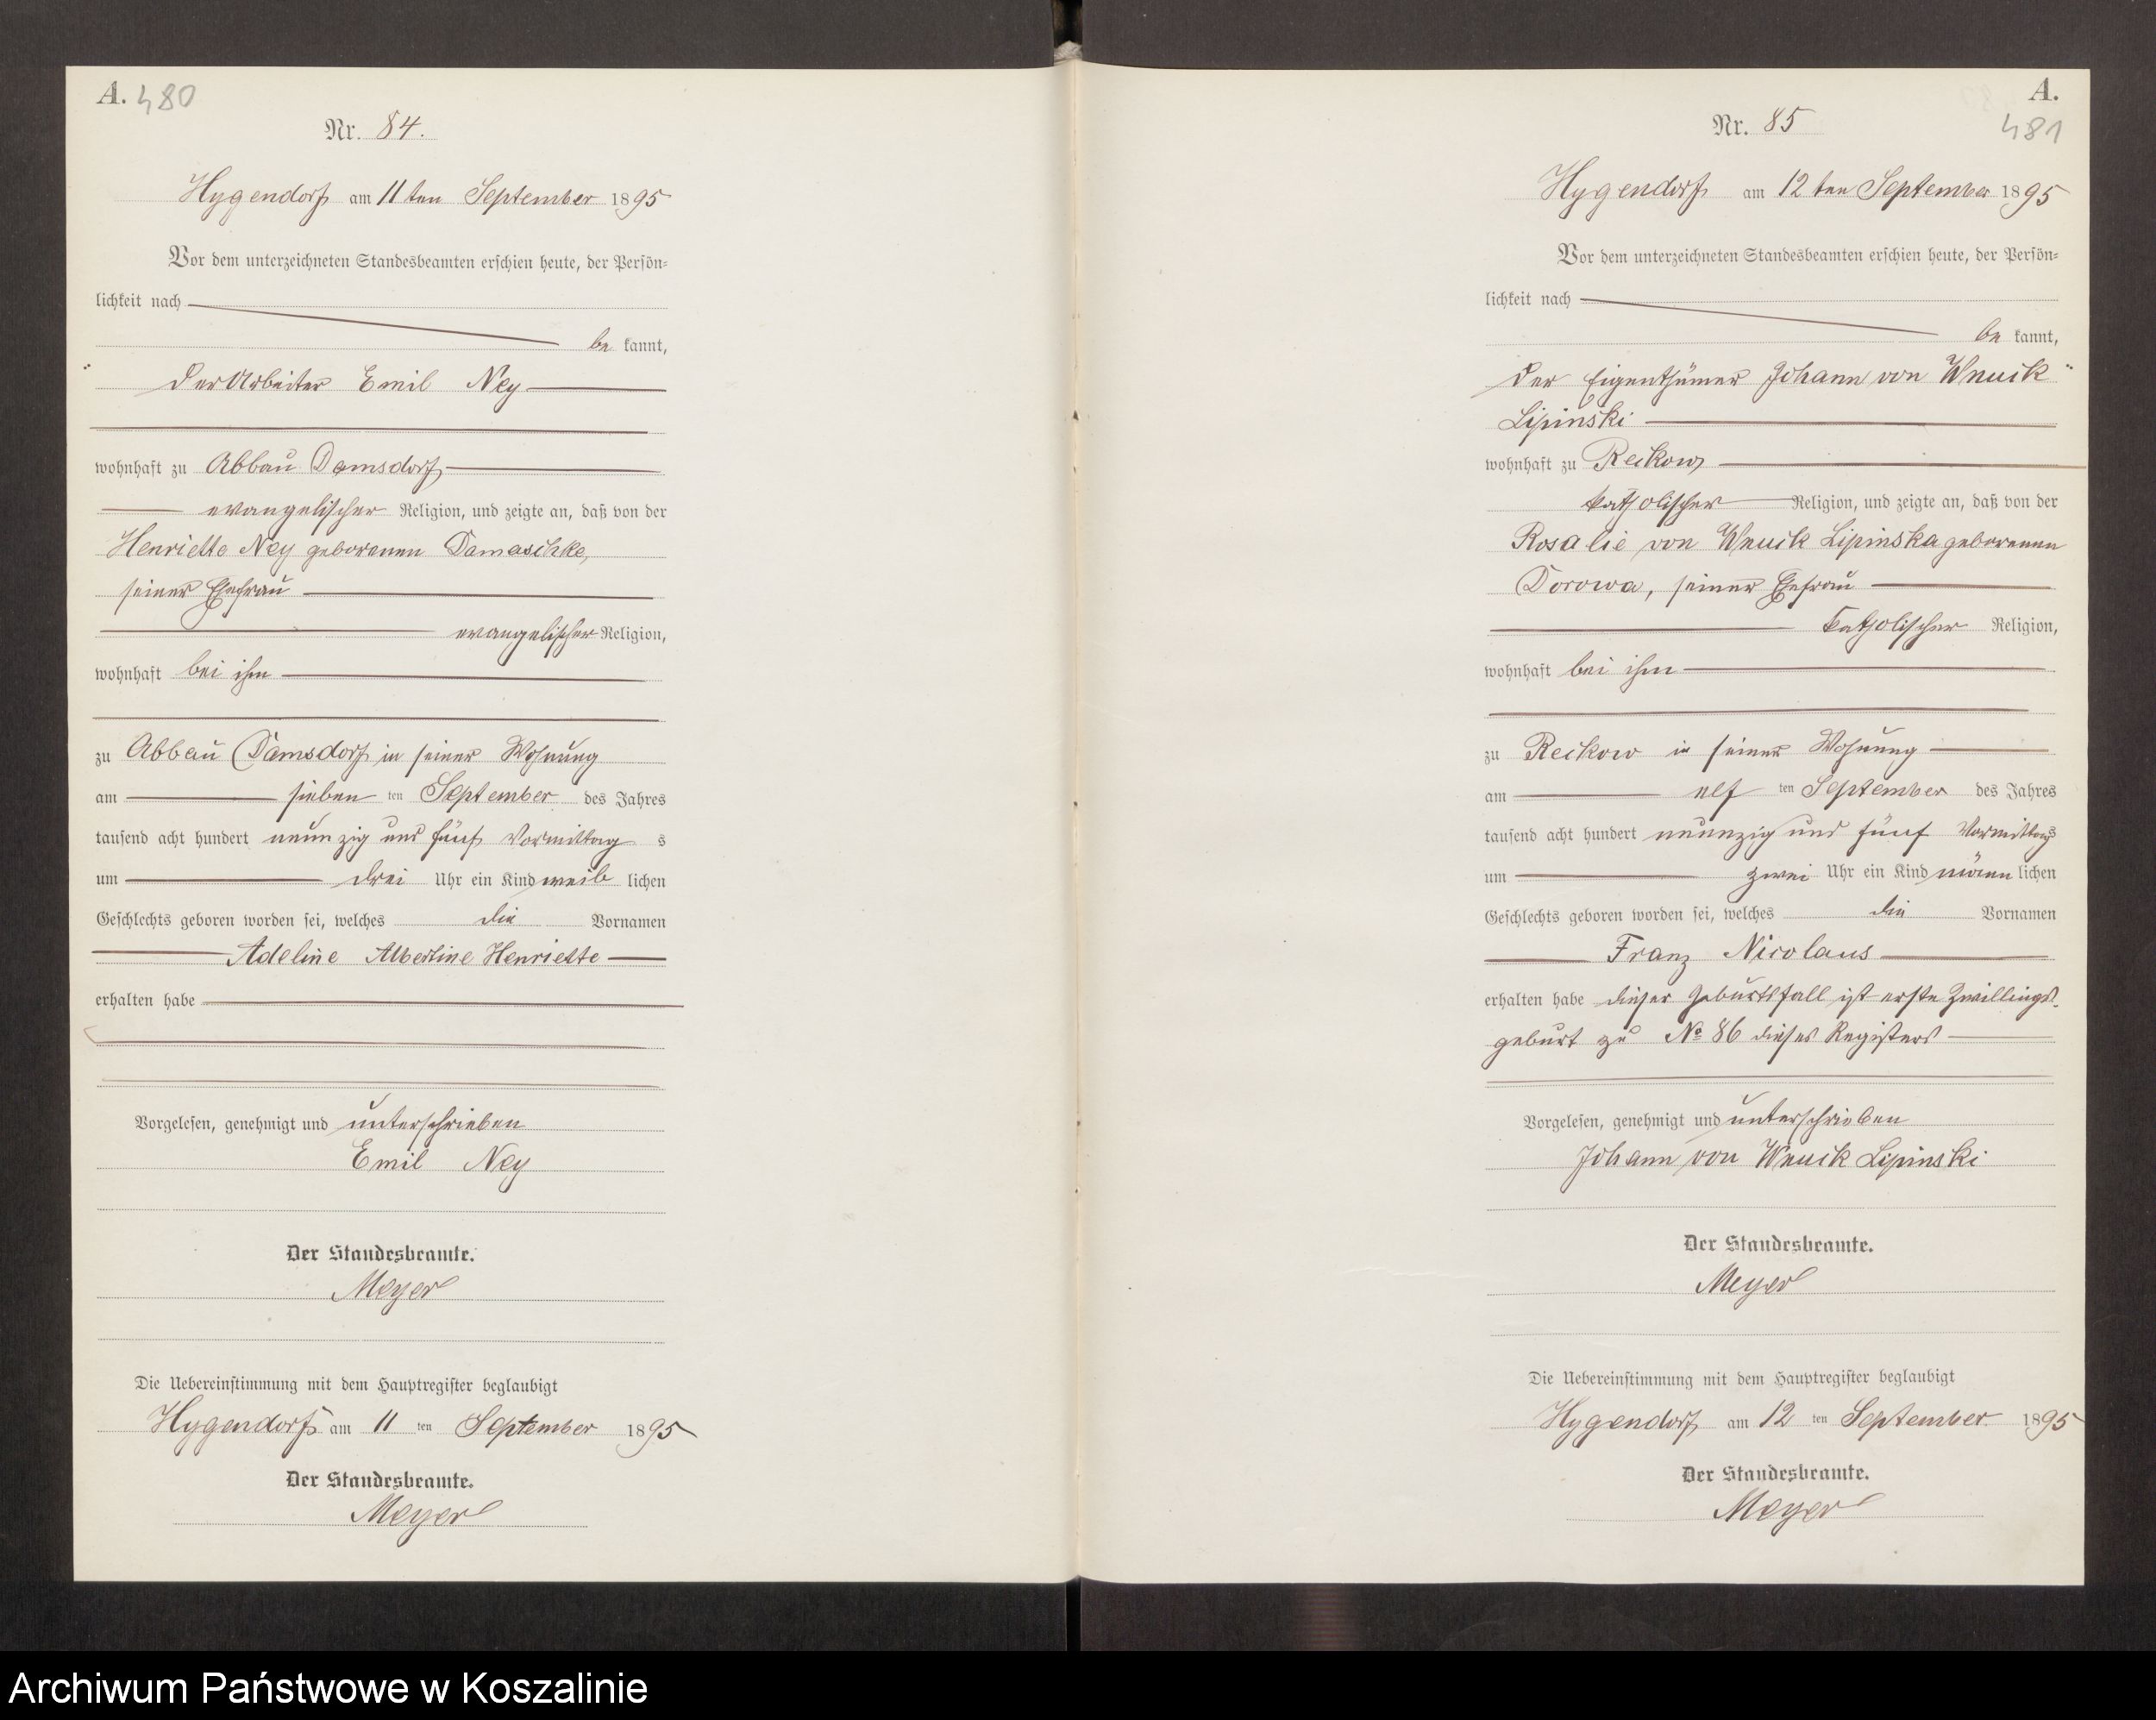 A. 480
Nr. 84.
Hygendorf am 11ten September 1895
Vor dem unterzeichneten Standesbeamten erschien heute, der Persön-
lichkeit nach
be kannt,
der Arbeiter Emil Ney
wohnhaft zu Abbau Damsdorf
evangelischer Religion, und zeigte an, daß von der
Henriette Ney geborenen Damaschke,
seiner Ehefrau
evangelischer Religion,
wohnhaft bei ihm
zu Abbau Damsdorf in seiner Wohnung
am sieben ten September des Jahres
tausend acht hundert neunzig und fünf Vormittag s
um drei Uhr ein Kind weib lichen
Geschlechts geboren worden sei, welches die Vornamen
Adeline Albertine Henriette
erhalten habe
Vorgelesen, genehmigt und unterschrieben
Emil Ney
Der Standesbeamte.
Meyer
Die Uebereinstimmung mit dem Hauptregister beglaubigt
Hygendorf am 11 ten September 1895
Der Standesbeamte.
Meyer
A.
481
Nr. 85
Hygendorf am 12ten September 1895
Vor dem unterzeichneten Standesbeamten erschien heute, der Persön-
lichkeit nach
be kannt,
der Eigenthümer Johann von Wnuck
Lipinski
wohnhaft zu Reckow
katholischer Religion, und zeigte an, daß von der
Rosalie von Wnuck Lipinska geborenen
Dorowa, seiner Ehefrau
katholischer Religion,
wohnhaft bei ihm
zu Reckow in seiner Wohnung
am elf ten September des Jahres
tausend acht hundert neunzig und fünf Vormittags
um zwei Uhr ein Kind männ lichen
Geschlechts geboren worden sei, welches die Vornamen
Franz Nicolaus
erhalten habe dieser Geburtsfall ist erste Zwillings-
geburt zu No 86 dieses Registers
Vorgelesen, genehmigt und unterschrieben
Johann von Wnuck Lipinski
Der Standesbeamte.
Meyer
Die Uebereinstimmung mit dem Hauptregister beglaubigt
Hygendorf am 12 ten September 1895
Der Standesbeamte.
Meyer
Archiwum Państwowe w Koszalinie